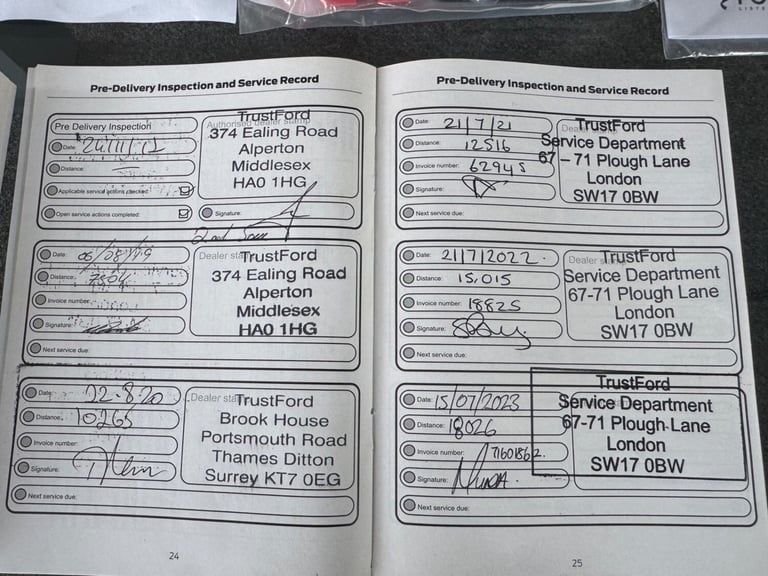 Pre-Delivery Inspection and Service Record
Pre Delivery Inspection
Date:
Distance:
Applicable service actions checked:
Open service actions completed:
Authorised dealer stamp
TrustFord
374 Ealing Road
Alperton
Middlesex
HA0 1HG
Signature:
Date: 06/08/19
Distance:
Invoice number:
Signature:
Next service due:
2nd
Dealer
TrustFord
374 Ealing Road
Alperton
Middlesex
HA0 1HG
Date: 12.8.20
Distance: 10265
Invoice number:
Signature:
Next service due:
Dealer
TrustFord
Brook House
Portsmouth Road
Thames Ditton
Surrey KT7 0EG
24
Pre-Delivery Inspection and Service Record
Date: 21/7/21
Distance: 12516
Invoice number: 62945
Signature:
Next service due:
TrustFord
Service Department
67 - 71 Plough Lane
London
SW17 0BW
Date: 21/7/2022.
Distance: 15,015
Invoice number: 18825
Signature:
Next service due:
Dealer
TrustFord
Service Department
67-71 Plough Lane
London
SW17 0BW
Date: 15/07/2023
Distance: 18026
Invoice number: 71601862.
Signature:
Next service due:
TrustFord
Service Department
67-71 Plough Lane
London
SW17 0BW
25